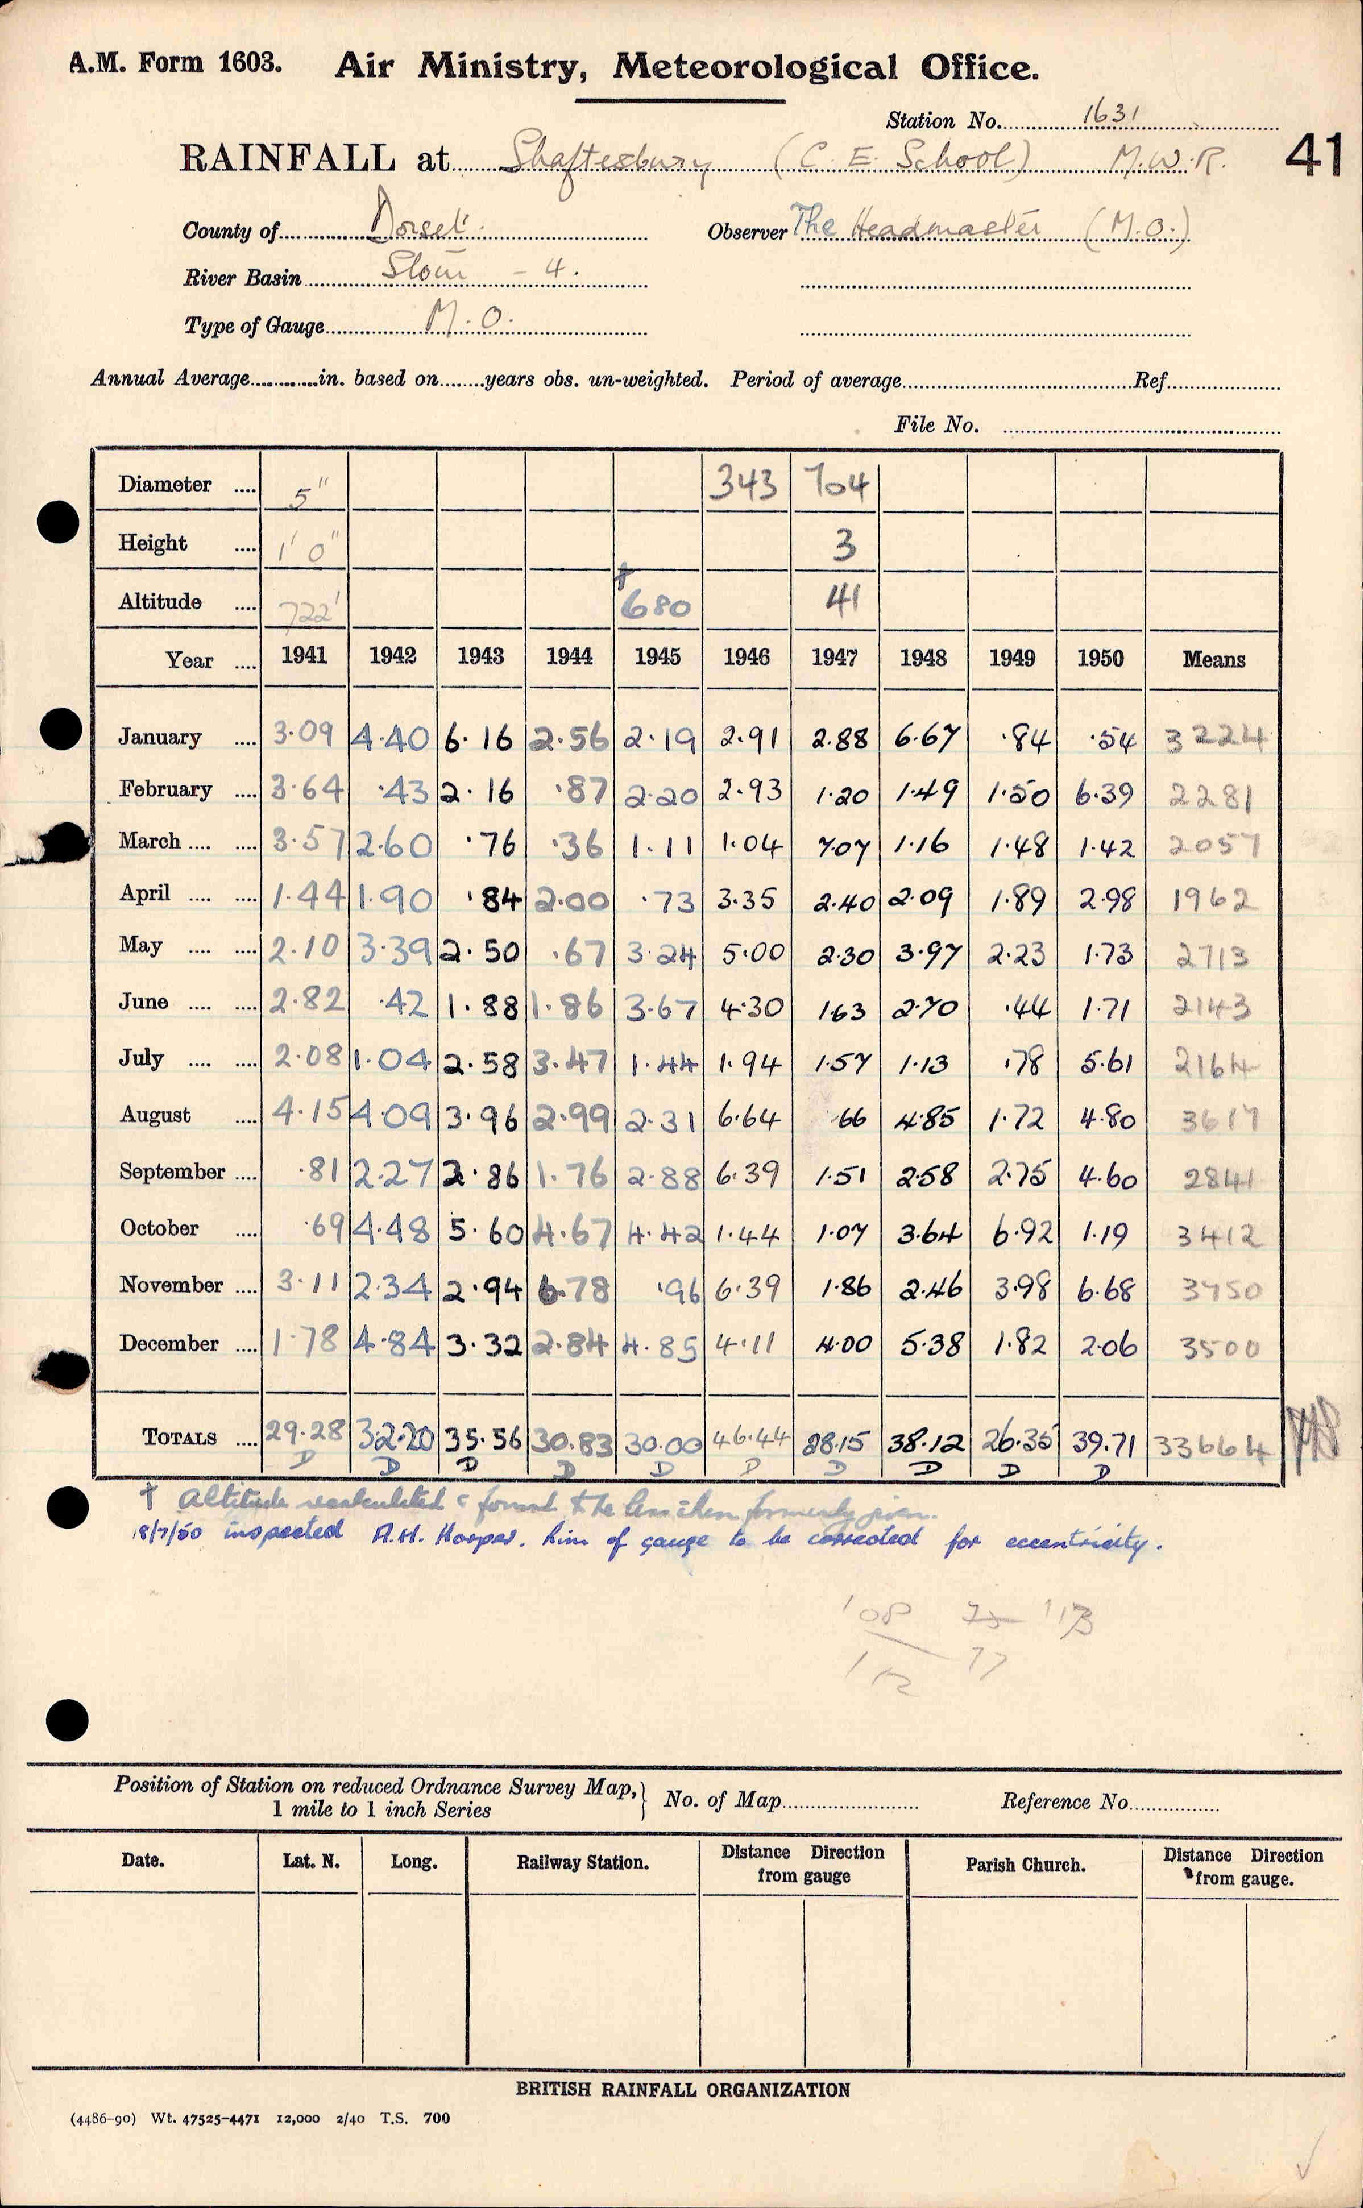 A.M. Form 1603. Air Ministry, Meteorological Office.
Station No. 1631
RAINFALL at Shaftesbury (C. E. School) M.W.R. 41
County of Dorset Observer The Headmaster (M.O.)
River Basin Stour - 4.
Type of Gauge M.O.
Annual Average in. based on years obs. un-weighted. Period of average Ref.
File No.
Diameter 5" 343 704
Height 1' 0" 3
Altitude 722' †680 41
Year 1941 1942 1943 1944 1945 1946 1947 1948 1949 1950 Means
January 3.09 4.40 6.16 2.56 2.19 2.91 2.88 6.67 .84 .54 3224
February 3.64 .43 2.16 .87 2.20 2.93 1.20 1.49 1.50 6.39 2281
March 3.57 2.60 .76 .36 1.11 1.04 7.07 1.16 1.48 1.42 2057
April 1.44 1.90 .84 2.00 .73 3.35 2.40 2.09 1.89 2.98 1962
May 2.10 3.39 2.50 .67 3.24 5.00 2.30 3.97 2.23 1.73 2713
June 2.82 .42 1.88 1.86 3.67 4.30 1.63 2.70 .44 1.71 2143
July 2.08 1.04 2.58 3.47 1.44 1.94 1.57 1.13 .78 5.61 2164
August 4.15 4.09 3.96 2.99 2.31 6.64 .66 4.85 1.72 4.80 3617
September .81 2.27 2.86 1.76 2.88 6.39 1.51 2.58 2.75 4.60 2841
October .69 4.48 5.60 4.67 4.42 1.44 1.07 3.64 6.92 1.19 3412
November 3.11 2.34 2.94 6.78 .96 6.39 1.86 2.46 3.98 6.68 3750
December 1.78 4.84 3.32 2.84 4.85 4.11 4.00 5.38 1.82 2.06 3500
TOTALS 29.28 32.20 35.56 30.83 30.00 46.44 28.15 38.12 26.35 39.71 33664
D D D D D D D D D D
† Altitude recalculated & found to be less than formerly given.
18/7/50 inspected A.H. Hooper. Rim of gauge to be corrected for eccentricity.
108 75 113
112 77
Position of Station on reduced Ordnance Survey Map,
1 mile to 1 inch Series
No. of Map Reference No.
Date. Lat. N. Long. Railway Station. Distance Direction from gauge Parish Church. Distance Direction from gauge.
BRITISH RAINFALL ORGANIZATION
(4486-90) Wt. 47525-4471 12,000 2/40 T.S. 700